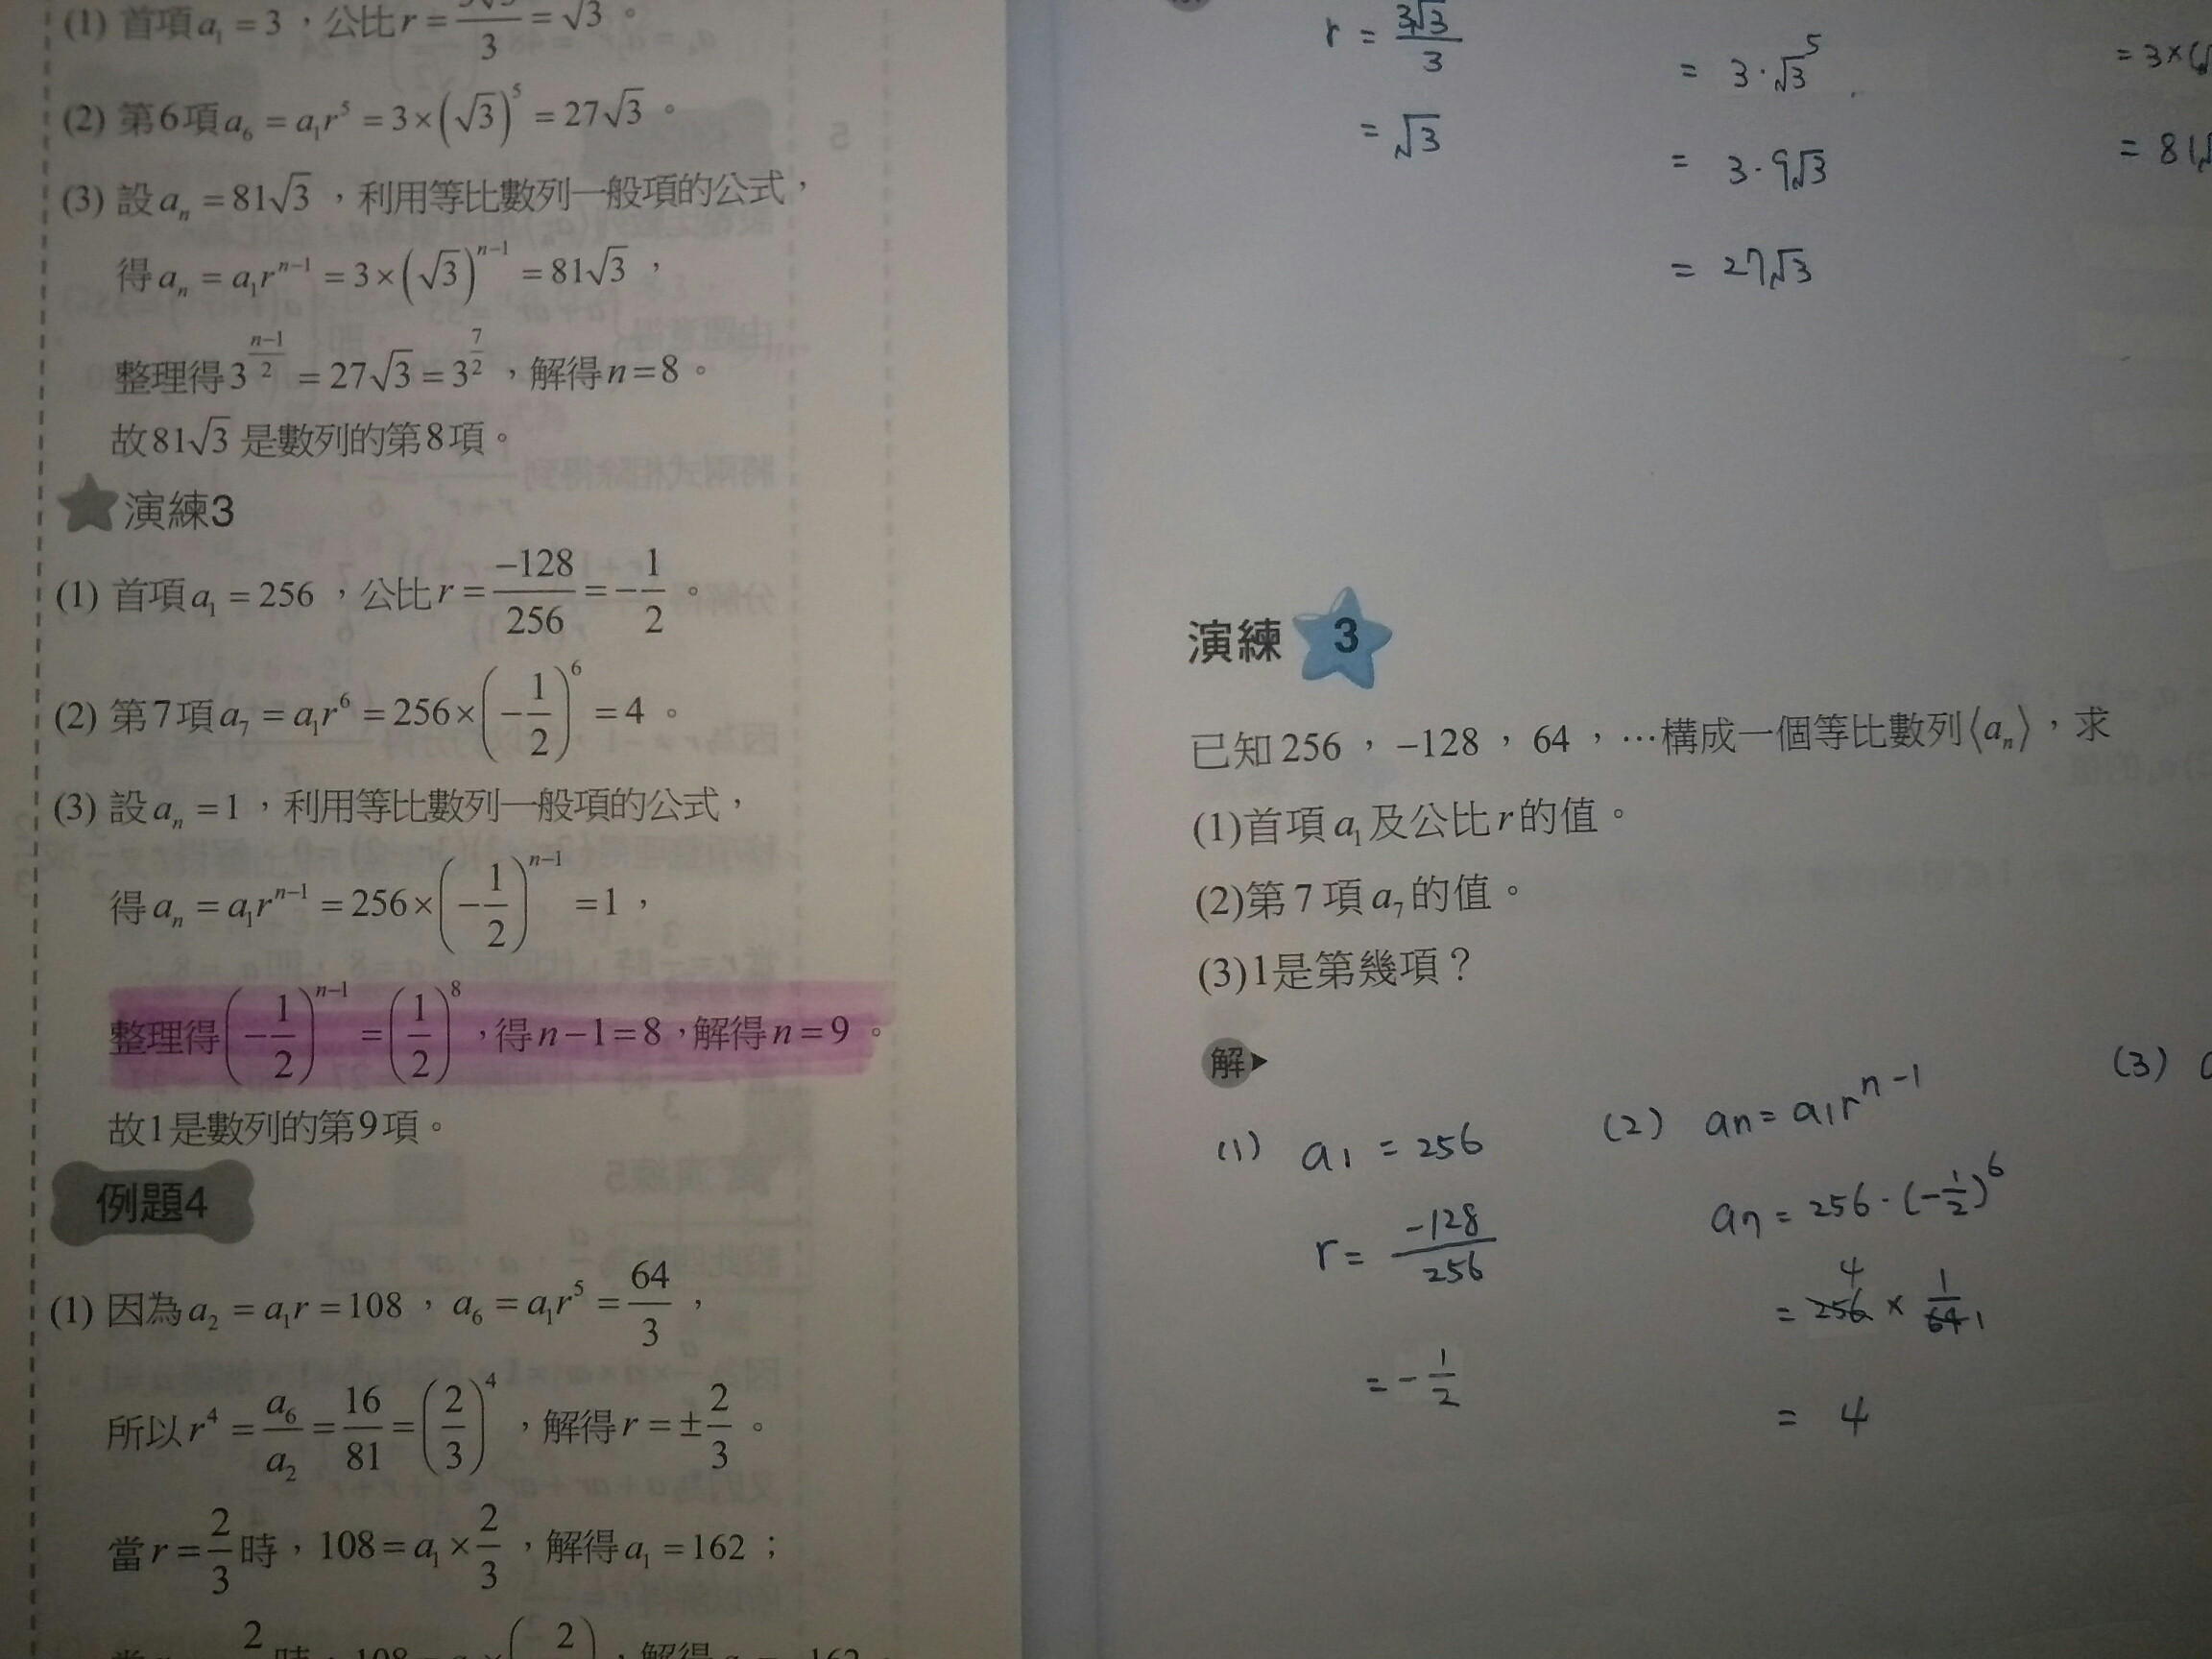 (1) 首項a₁ = 3，公比r = 3√3/3 = √3。
(2) 第6項a₆ = a₁r⁵ = 3×(√3)⁵ = 27√3。
(3) 設aₙ = 81√3，利用等比數列一般項的公式，
得aₙ = a₁rⁿ⁻¹ = 3×(√3)ⁿ⁻¹ = 81√3，
整理得3^((n−1)/2) = 27√3 = 3^(7/2)，解得n=8。
故81√3是數列的第8項。
演練3
(1) 首項a₁ = 256，公比r = −128/256 = −1/2。
(2) 第7項a₇ = a₁r⁶ = 256×(−1/2)⁶ = 4。
(3) 設aₙ = 1，利用等比數列一般項的公式，
得aₙ = a₁rⁿ⁻¹ = 256×(−1/2)ⁿ⁻¹ = 1，
整理得(−1/2)ⁿ⁻¹ = (1/2)⁸，得n−1=8，解得n=9。
故1是數列的第9項。
例題4
(1) 因為a₂ = a₁r = 108，a₆ = a₁r⁵ = 64/3，
所以r⁴ = a₆/a₂ = 16/81 = (2/3)⁴，解得r = ±2/3。
當r = 2/3時，108 = a₁×2/3，解得a₁ = 162；
r = 3√3/3
= √3
= 3·√3⁵
= 3·9√3
= 27√3
演練 3
已知256，−128，64，…構成一個等比數列⟨aₙ⟩，求
(1)首項a₁及公比r的值。
(2)第7項a₇的值。
(3)1是第幾項？
解
(1) a₁ = 256
r = −128/256
= −1/2
(2) an = a₁rⁿ⁻¹
a₇ = 256·(−1/2)⁶
= 256 4 × 1/64 1
= 4
(3)